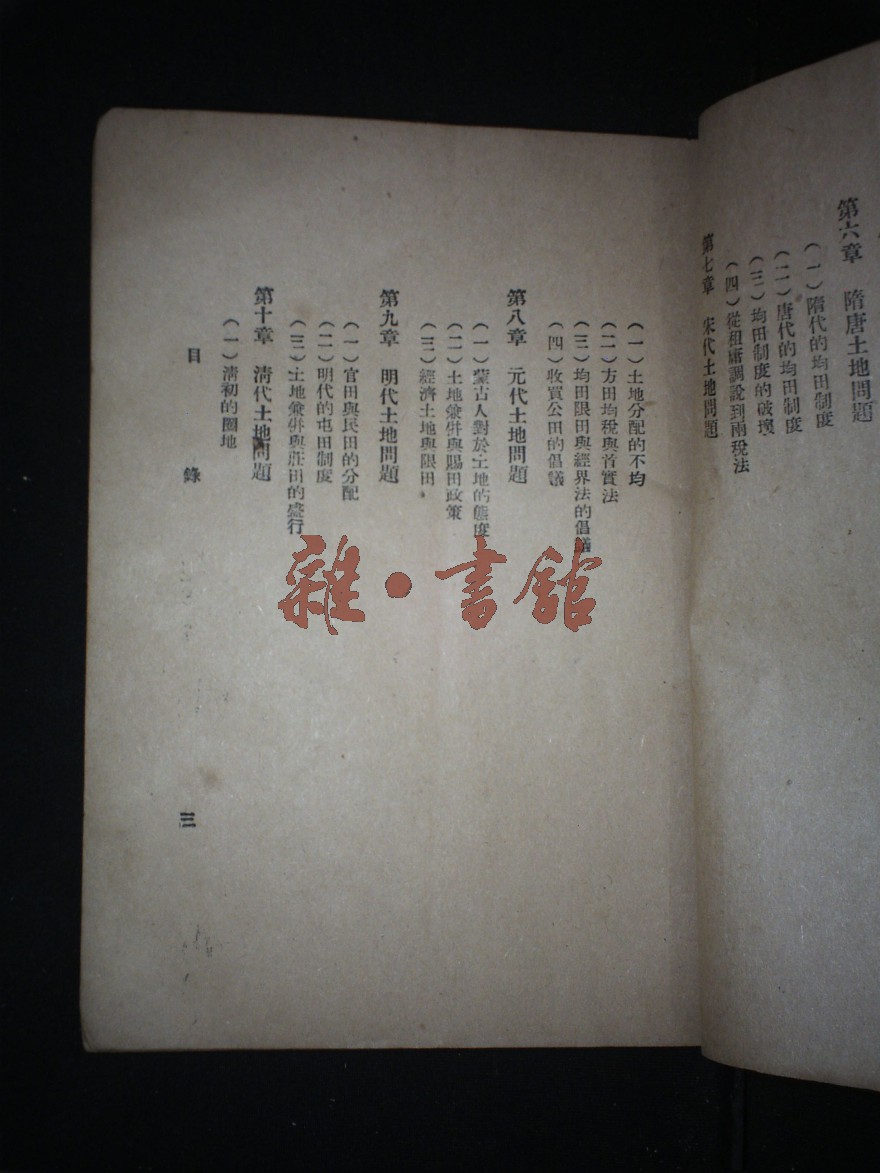 第六章　隋唐土地問題
（一）隋代的均田制度
（二）唐代的均田制度
（三）均田制度的破壞
（四）從租庸調說到兩稅法
第七章　宋代土地問題
（一）土地分配的不均
（二）方田均稅與首實法
（三）均田限田與經界法的倡議
（四）收買公田的倡議
第八章　元代土地問題
（一）蒙古人對於土地的態度
（二）土地兼併與賜田政策
（三）經濟土地與限田
第九章　明代土地問題
（一）官田與民田的分配
（二）明代的屯田制度
（三）土地兼併與莊田的盛行
第十章　清代土地問題
（一）清初的圈地
目　錄　三
雜・書館